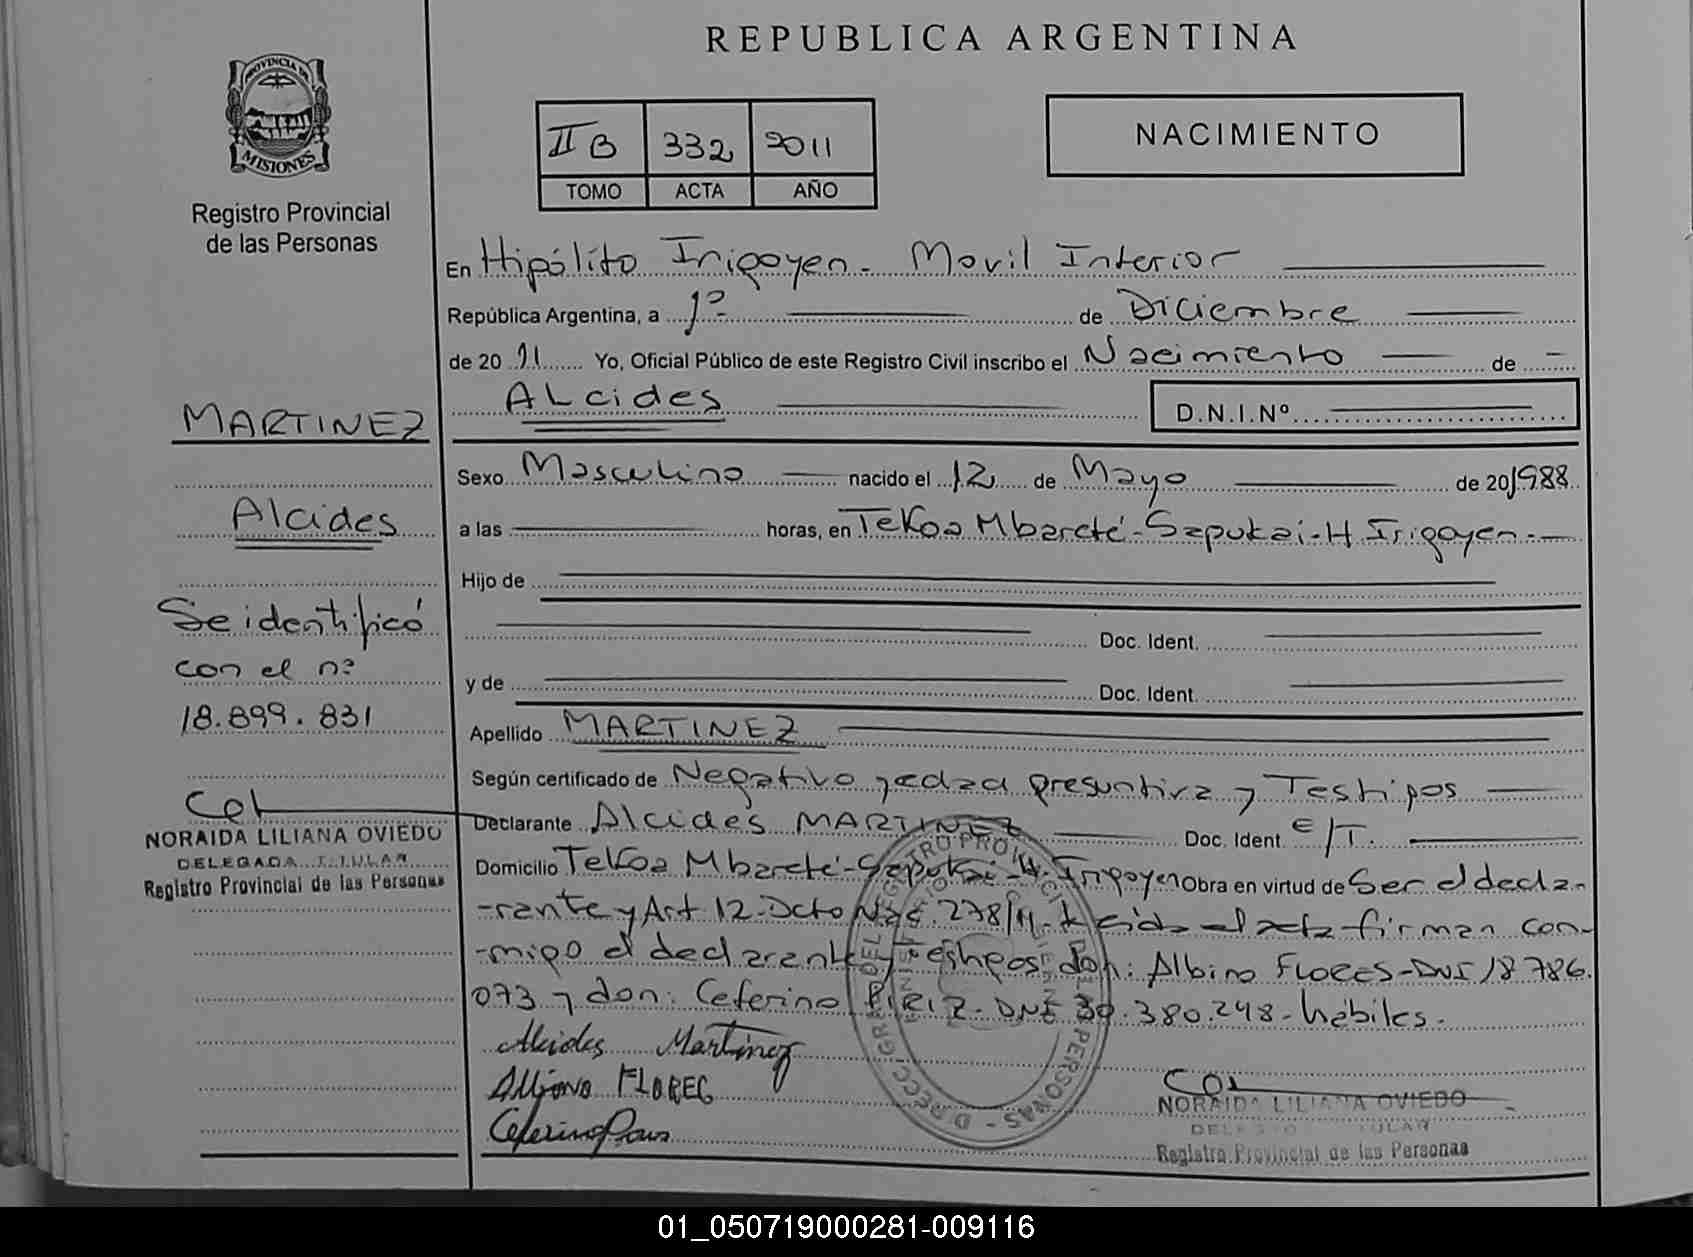 REPUBLICA ARGENTINA
PROVINCIA DE
MISIONES
Registro Provincial
de las Personas
II B 332 2011
TOMO ACTA AÑO
NACIMIENTO
En Hipólito Irigoyen - Movil Interior
República Argentina, a 1º de Diciembre
de 2011 Yo, Oficial Público de este Registro Civil inscribo el Nacimiento de
ALcides
D.N.I.Nº
MARTINEZ
Alcides
Se identificó
con el nº
18.899.831
NORAIDA LILIANA OVIEDO
DELEGADA TITULAR
Registro Provincial de las Personas
Sexo Masculino nacido el 12 de Mayo de 20 1988
a las horas, en Tekoa Mbareté - Sapukai - H Irigoyen.
Hijo de
Doc. Ident.
y de Doc. Ident.
Apellido MARTINEZ
Según certificado de Negativo y edad presuntiva y Testigos
Declarante Alcides MARTINEZ Doc. Ident E/T.
Domicilio Tekoa Mbareté - Sapukai - H. Irigoyen Obra en virtud de Ser el decla-
-rante y Art 12. Dcto Nac. 278/11. Leida el acta firman con-
-migo el declarante y Testigos don: Albino FLORES - DNI 18.786.
073 y don: Ceferino PIRIZ - DNI 30.380.248 - hábiles.
Alcides Martinez
FLOREC
Ceferino
NORAIDA LILIANA OVIEDO
Registro Provincial de las Personas
01_050719000281-009116